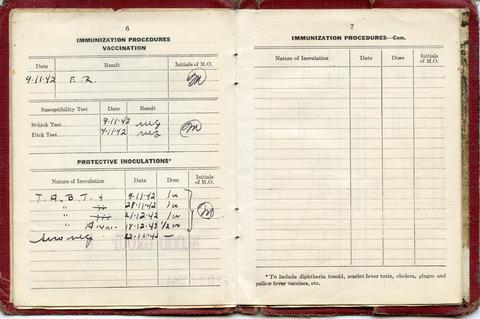 6
IMMUNIZATION PROCEDURES
VACCINATION
Date Result Initials of M.O.
9-11-42
Susceptibility Test Date Result
Schick Test 9-11-42 neg
Dick Test 9-11-42 neg
PROTECTIVE INOCULATIONS*
Nature of Inoculation Date Dose Initials of M.O.
T.A.B.T. 9-11-42
" 28-11-42
" 21-12-42
"
BLOOD GROUP
7
IMMUNIZATION PROCEDURES—Con.
Nature of Inoculation Date Dose Initials of M.O.
*To include diphtheria toxoid, scarlet fever toxin, cholera, plague and
yellow fever vaccines, etc.